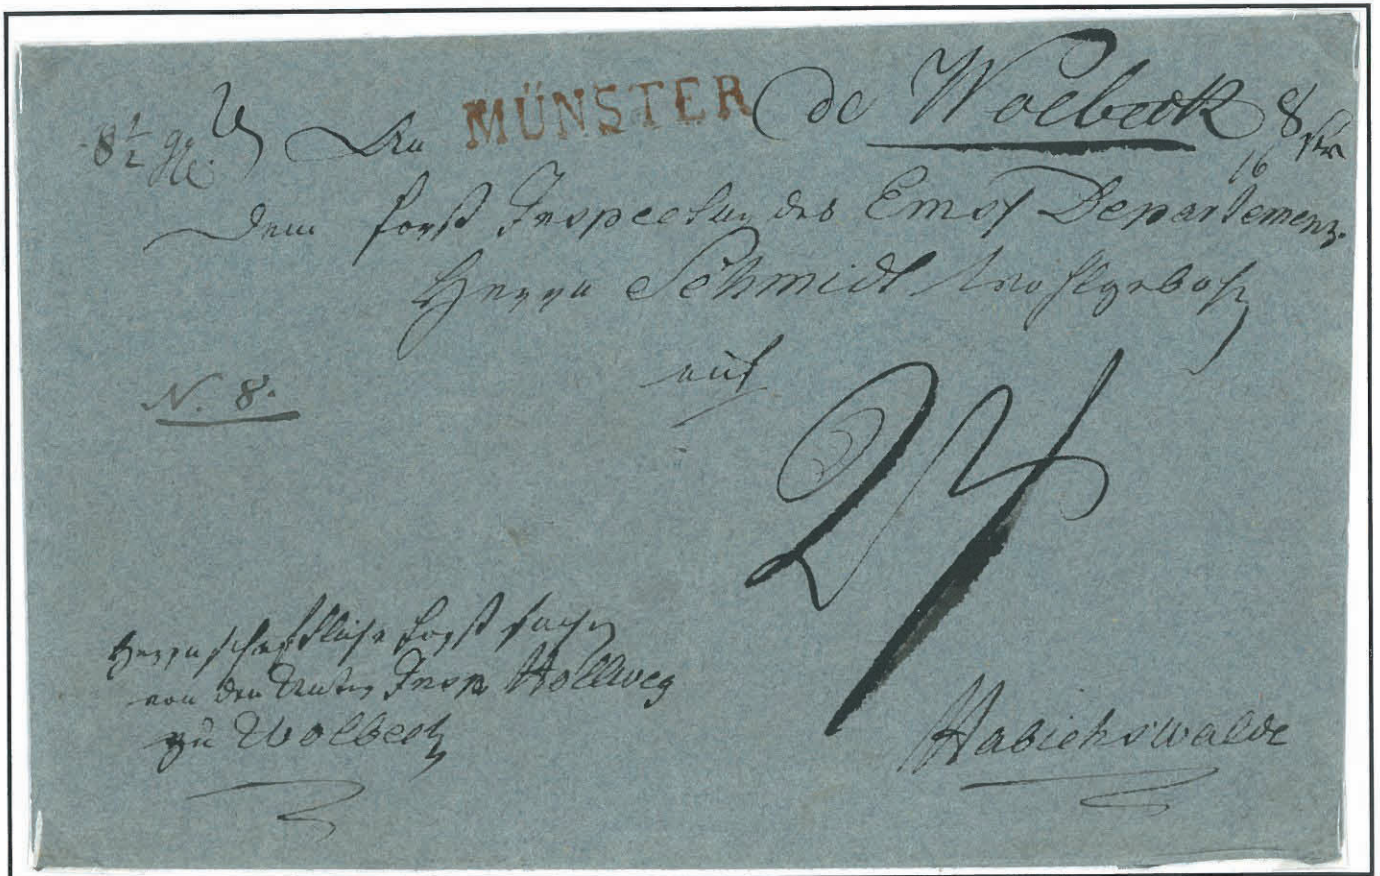 8½ An MÜNSTER de Woelbeck 8
16
Dem Forst Inspector des Ems Departements
Herrn Schmidt Wohlgebohrn
auf
N. 8.
24
Herrschaftliche Forst sachen
von den Unter Insp Hollweg
zu Wolbeck
Habichswalde